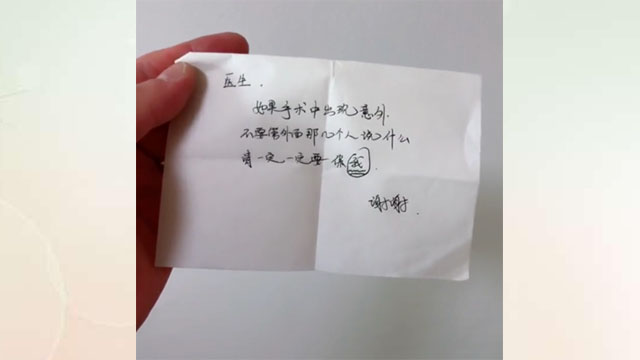 医生.
如果手术中出现意外.
不要管外面那几个人说什么
请一定一定要保我.
谢谢.